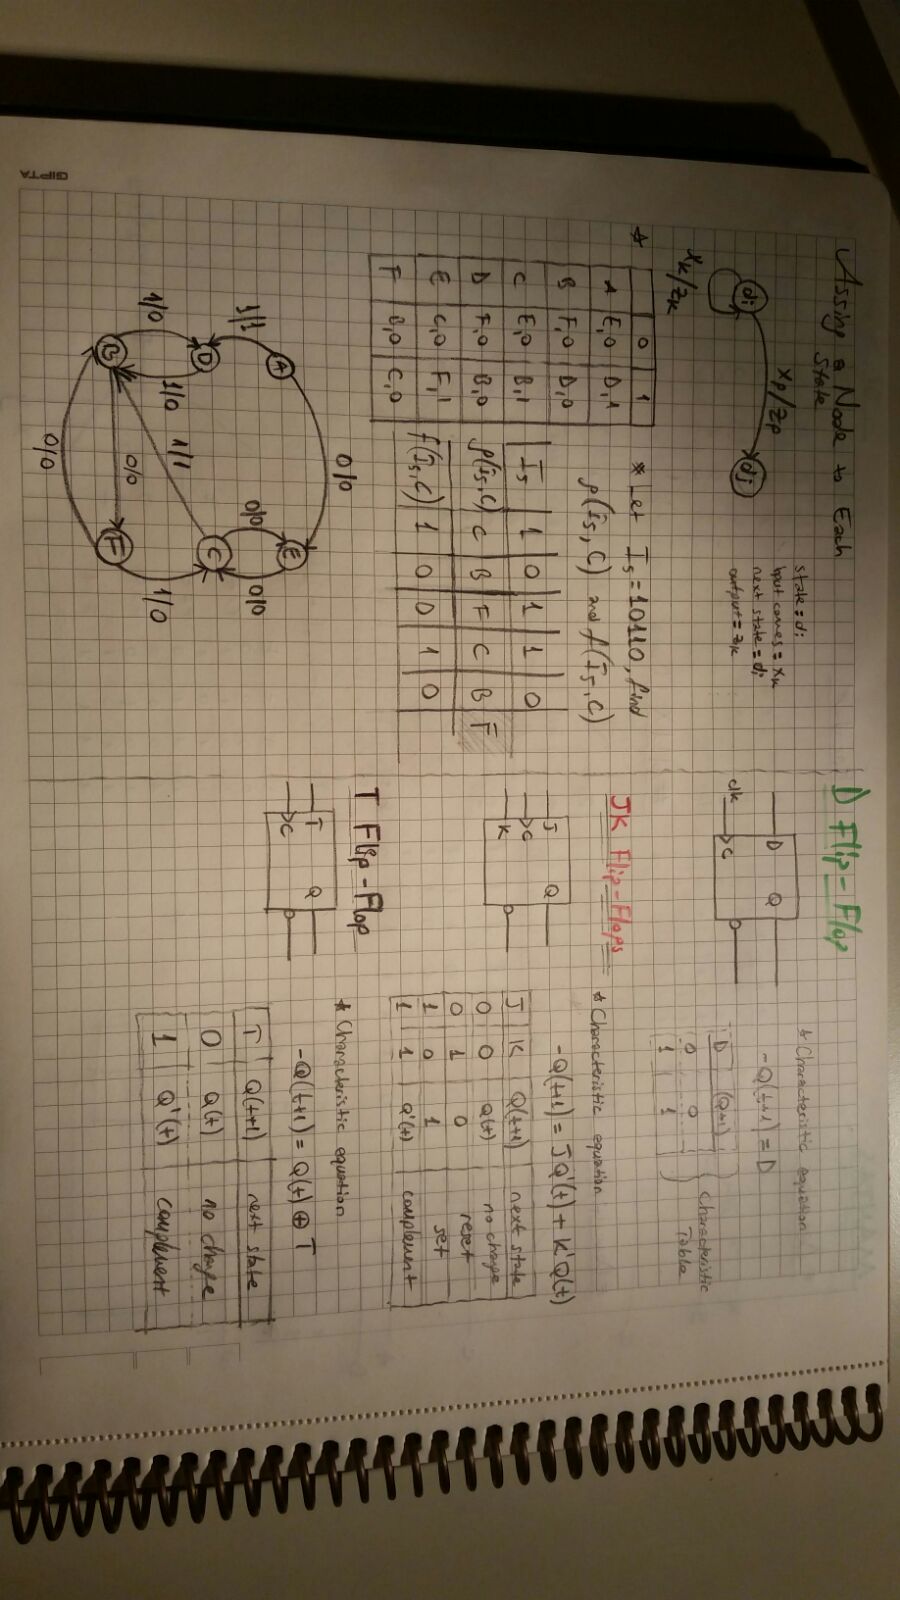 Assing a Node to Each
State
xp/zp
di
dj
xk/zk
state = di
Input comes = xk
next state = dj
output = zk
0 1
A E,0 D,1
B F,0 D,0
C E,0 B,1
D F,0 B,0
E C,0 F,1
F B,0 C,0
* Let I5 = 10110, find
ρ(I5, C) and f(I5, C)
I5 1 0 1 1 0
ρ(I5, C) C B F C B F
f(I5, C) 1 0 0 1 0
0/0
A
E
1/1
0/0
0/0
D
C
1/0
1/0
1/1
1/0
0/0
B
F
0/0
D Flip-Flop
D Q
clk C
* Characteristic equation
-Q(t+1) = D
D (Q+1)
0 0
1 1
Characteristic
Table
JK Flip-Flops
J Q
C
K
* Characteristic equation
-Q(t+1) = JQ'(t) + K'Q(t)
J K Q(t+1) next state
0 0 Q(t) no change
0 1 0 reset
1 0 1 set
1 1 Q'(t) complement
T Flip-Flop
T Q
C
* Characteristic equation
-Q(t+1) = Q(t) ⊕ T
T Q(t+1) next state
0 Q(t) no change
1 Q'(t) complement
GIPTA